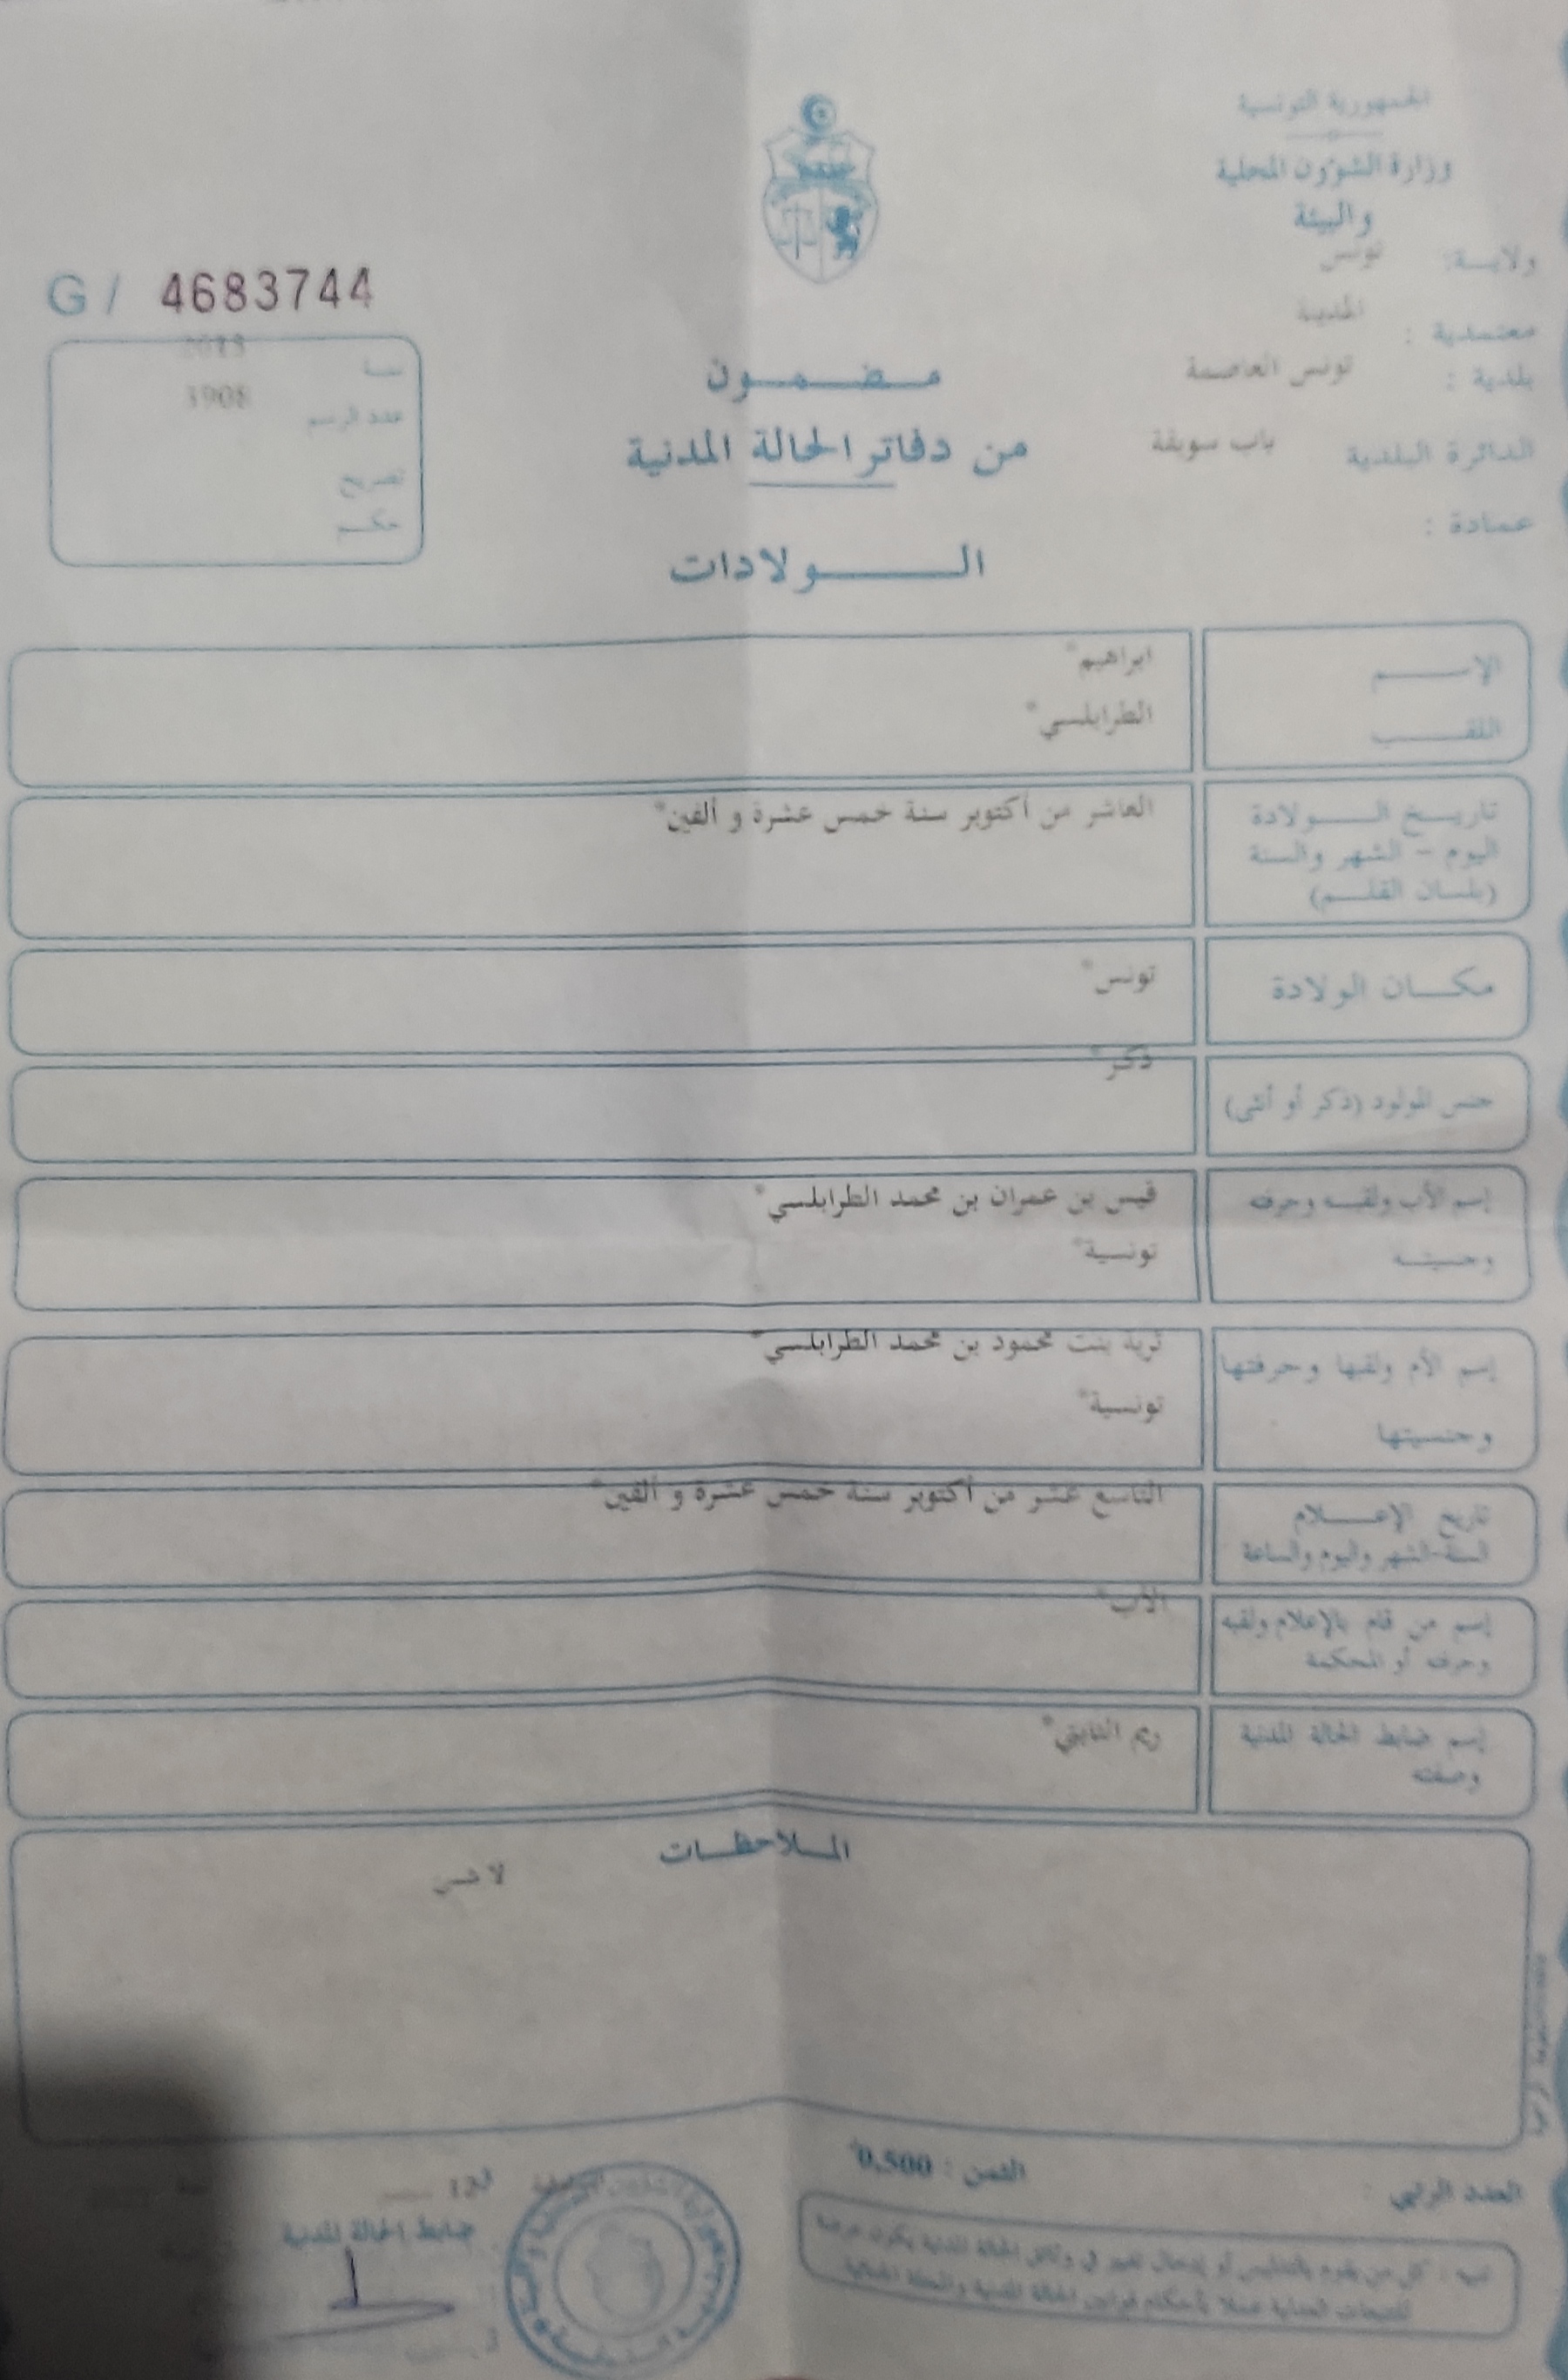 الجمهورية التونسية
وزارة الشؤون المحلية
والبيئة
ولاية: تونس
معتمدية : المدينة
بلدية : تونس العاصمة
الدائرة البلدية باب سويقة
عمادة :
G / 4683744
سنة 2015
عدد الرسم 3908
تصريح
حكم
مضمون
من دفاتر الحالة المدنية
الولادات
الإسم ابراهيم*
اللقب الطرابلسي*
تاريخ الولادة العاشر من أكتوبر سنة خمس عشرة و ألفين*
اليوم - الشهر والسنة
(بلسان القلم)
مكان الولادة تونس*
جنس المولود (ذكر أو أنثى) ذكر*
إسم الأب ولقبه وحرفته قيس بن عمران بن محمد الطرابلسي*
وجنسيته تونسية*
إسم الأم ولقبها وحرفتها بنت محمود بن محمد الطرابلسي*
وجنسيتها تونسية*
تاريخ الإعلام التاسع عشر من أكتوبر سنة خمس عشرة و ألفين*
السنة-الشهر واليوم والساعة
إسم من قام بالإعلام ولقبه الأب*
وحرفته أو المحكمة
إسم ضابط الحالة المدنية ريم الثابتي*
وصفته
الملاحظات
لا شيء
العدد الرتبي :
الثمن : 0,500
تنبيه : كل من يقوم بالتدليس أو إدخال تغيير في وثائق الحالة المدنية يكون عرضة
للتتبعات العدلية عملا بأحكام قوانين الحالة المدنية والمجلة الجنائية
ضابط الحالة المدنية